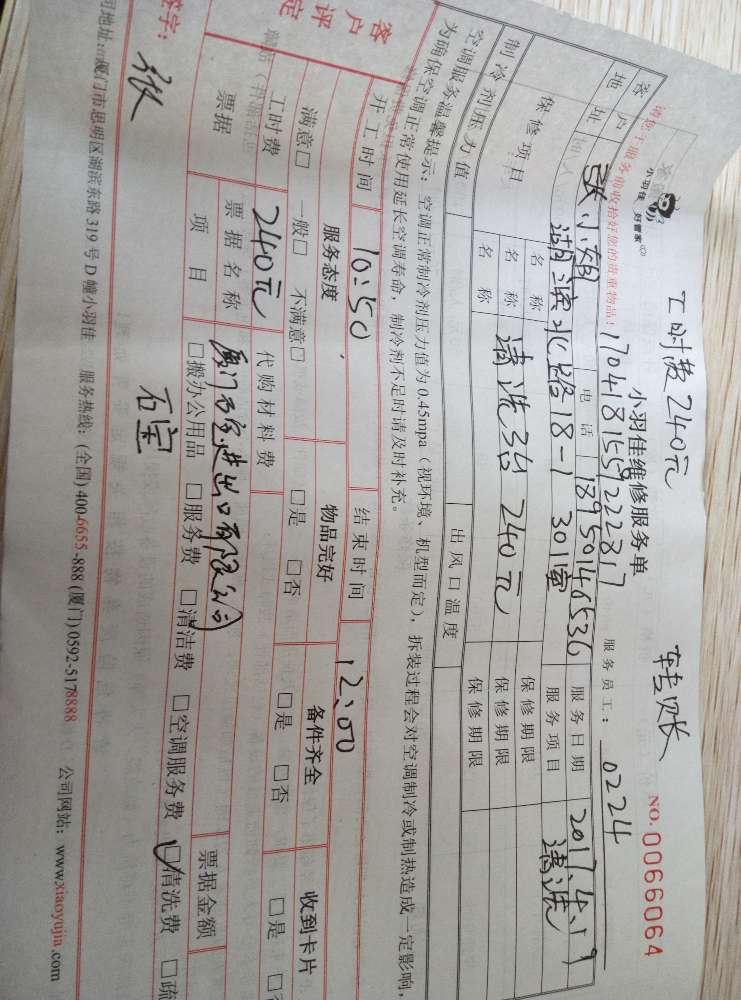 工时费240元 转账
小羽佳 好管家
小羽佳维修服务单
NO. 0066064
1704181559222817 服务员工: 0224
请您于服务前收拾好您的贵重物品!
客户 小姐 电话 18950146536 服务日期 2017.4.19
地址 湖滨北路18-1 301室 服务项目 清洗
保修项目 名称 保修期限
名称 清洗3台 240元 保修期限
名称 保修期限
制冷剂压力值 出风口温度
空调服务温馨提示: 空调正常制冷剂压力值为0.45mpa (视环境、机型而定), 拆装过程会对空调制冷或制热造成一定影响,
为确保空调正常使用延长空调寿命, 制冷剂不足时请及时补充。
开工时间 10:50 结束时间 12:00
客户评定
服务态度 物品完好 备件齐全 收到卡片
满意□ 一般□ 不满意□ □是 □否 □是 □否 □是
工时费 240元 代购材料费
票据 票据名称 厦门 进出口有限公司 票据金额
项目 □搬办公用品 □服务费 □清洁费 □空调服务费 ☑清洗费 □疏
签字: 张
司地址: 厦门市思明区湖滨东路319号D幢小羽佳 服务热线: (全国) 400-6655-888 (厦门) 0592-5178888 公司网站: www.xiaoyujia.com